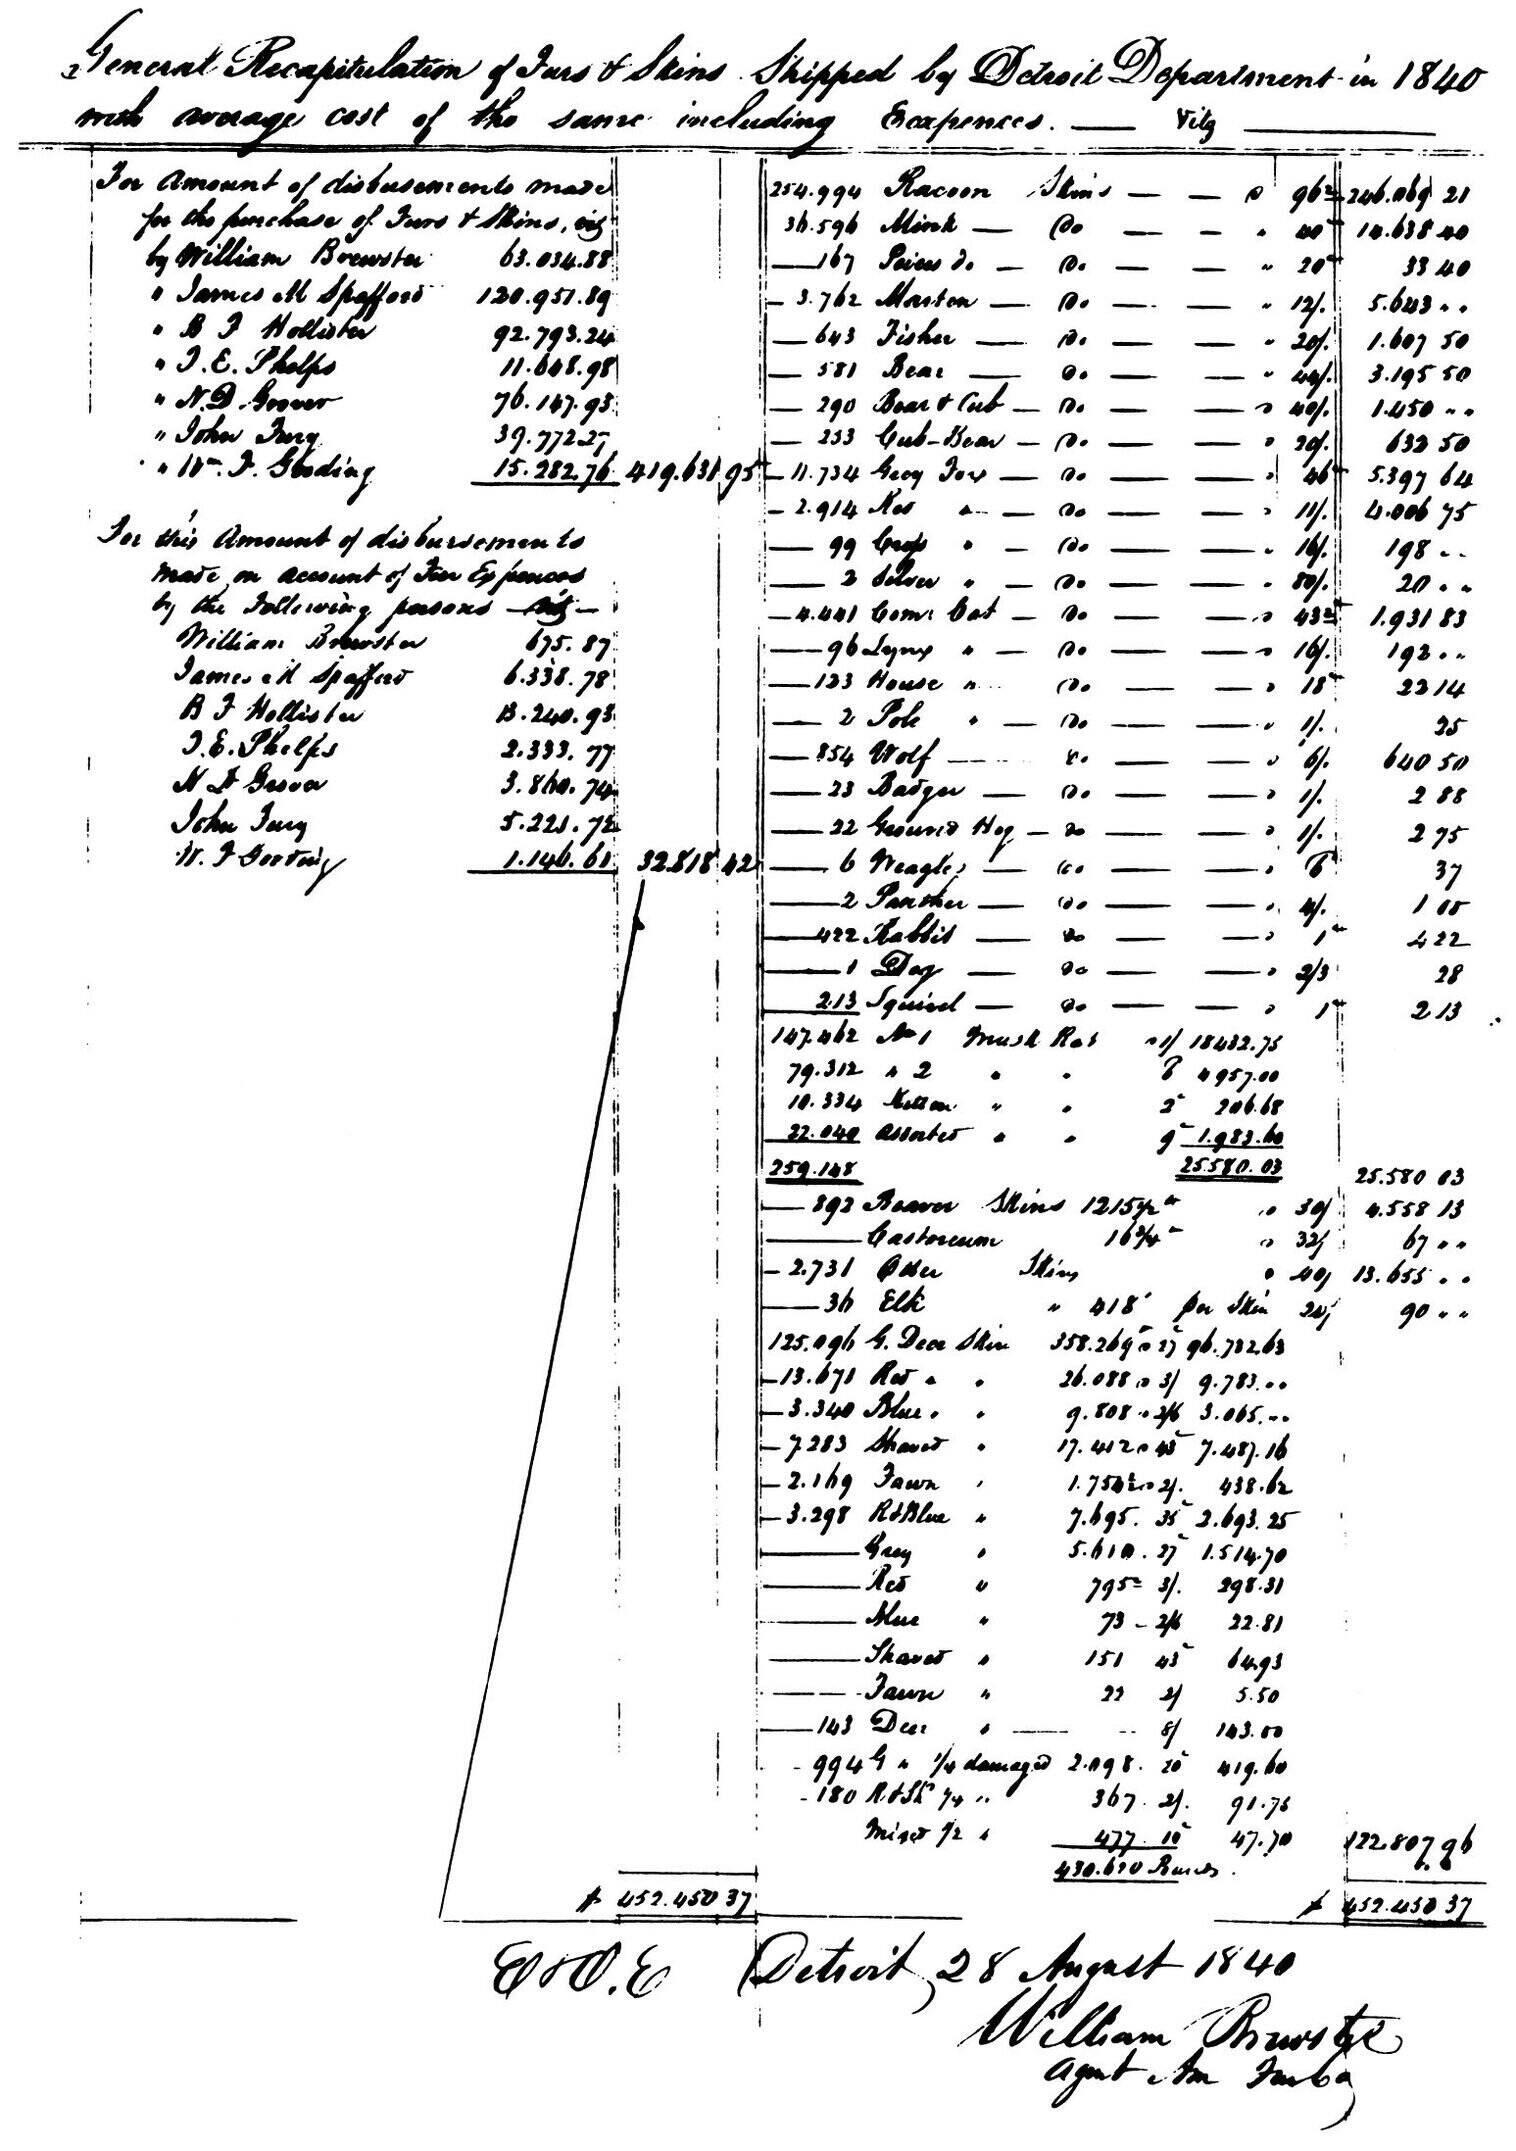 General Recapitulation of Furs & Skins Shipped by Detroit Department in 1840
with average cost of the same including Excapences. Vitz
For Amount of disbusements made
for the purchase of Furs & Skins, viz
by William Brewster 63.034.88
" James M Spafford 120.951.89
" B F Hollister 92.793.24
" J. E. Phelps 11.648.98
" N. D. Grover 76.147.93
" John Fury 39.772.27
" Wm. F. Gooding 15.282.76 419.631 95
For this Amount of disbursements
made on account of Fur Expences
by the Following persons viz
William Brewster 675.87
James M Spafford 6.338.78
B F Hollister 13.240.93
J. E. Phelps 2.333.77
N D Grover 3.860.74
John Fury 5.221.72
W. F Gooding 1.146.61 32.818 42
$ 452.450 37
254.994 Racoon Skins 96½ 246.069 21
36.596 Mink Do 40 14.638 40
167 Do. 20 33 40
3.762 Marten Do. 12/. 5.643 " "
643 Fisher Do. 20/. 1.607 50
581 Bear Do. 44/. 3.195 50
290 Bear & Cub Do. 40/. 1.450 " "
253 Cub-Bear Do. 20/. 632 50
11.734 Grey Fox Do. 46 5.397 64
2.914 Red " Do. 11/. 4.006 75
99 Cross " Do. 16/. 198 " "
2 Silver " Do. 80/. 20 " "
4.441 Come Cat Do. 43½ 1.931 83
96 Lynx " Do. 16/. 192 " "
123 House " Do. 18 22 14
2 Pole " Do. 1/. 25
854 Wolf Do. 6/. 640 50
23 Badger Do. 1/. 2 88
22 Ground Hog Do 1/. 2 75
6 Do 6 37
2 Panther Do. 4/. 1 00
422 Rabbit Do 1 4 22
1 Dog Do 2/3 28
213 Squirel Do 1 2 13
147.462 No 1 Musk Rat 1/ 18432.75
79.312 " 2 " " 6 4957.00
10.334 Kitten " " 2 206.68
22.040 Assorted " " 9 1.983.60
259.148 25.580.03 25.580 03
892 Beaver Skins 1215½ 30/ 4.558 13
Castoreum 16¾ 32/ 67 " "
2.731 Otter Skins 40/ 13.655 " "
36 Elk " 418 per Skin 20/ 90 " "
125.096 G. Deer Skin 358.269 27 96.732.63
13.671 Red " " 26.088 3/ 9.783. " "
3.340 Blue " " 9.808 2/6 3.065. " "
7.283 Shaved " 17.412 43 7.487.16
2.169 Fawn " 1.754½ 2/. 438.62
3.298 R & Blue " 7.695. 35 2.693.25
Grey " 5.610. 27 1.514.70
Red " 795½ 3/. 298.31
Blue " 73 2/6 22.81
Shaved " 151 43 64.93
Fawn " 22 2/ 5.50
143 Deer " 8/ 143.00
994 G " 1/4 damaged 2.098. 20 419.60
180 R & Sh 1/4 " 367. 2/. 91.75
Mixed 1/2 " 477 10 47.70 122.807 96
430.620 Pounds.
$ 452.450 37
E & O. E Detroit, 28 August 1840
William Brewster
Agent Am Fur Co